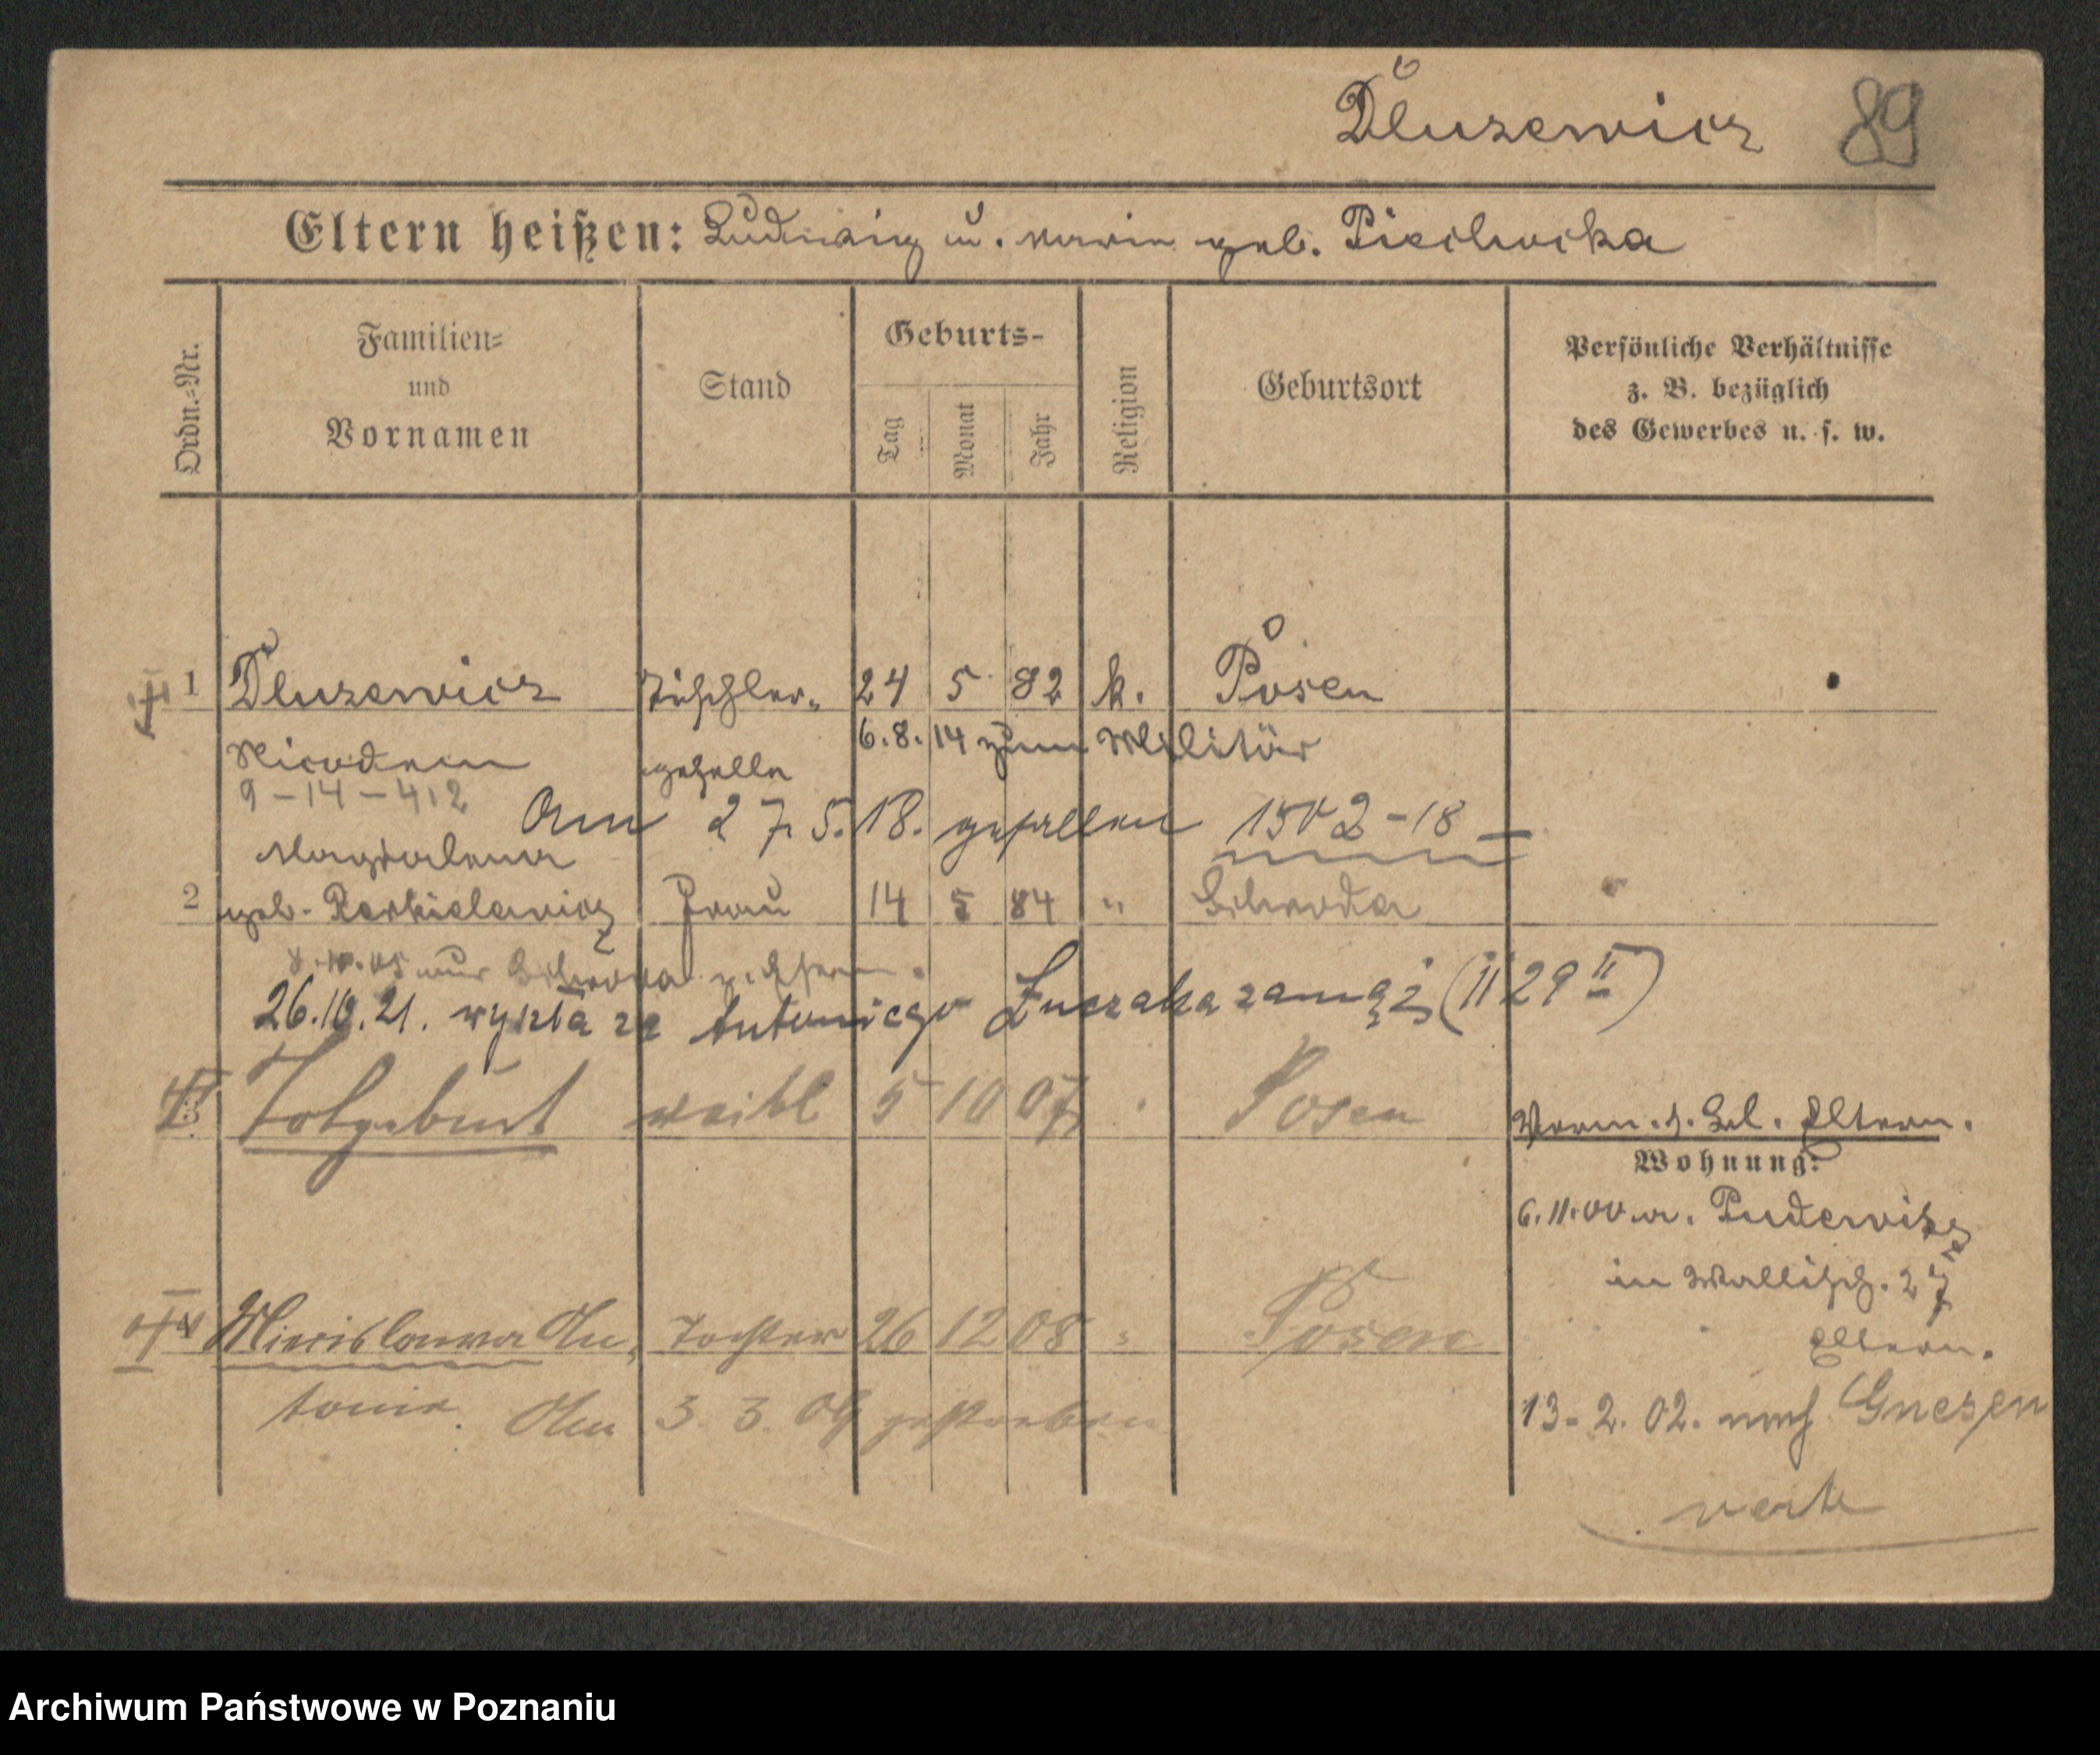 Dluzewicz 89
Eltern heißen: Ludwig u. Marie geb. Piechocka
Ordn.-Nr.
Familien-
und
Vornamen
Stand
Geburts-
Tag
Monat
Jahr
Religion
Geburtsort
Persönliche Verhältnisse
z. B. bezüglich
des Gewerbes u. s. w.
1 Dluzewicz Tischler- 24 5 82 k. Posen
Nicodem geselle 6.8.14 zum Militär
9-14-412
Am 27.5.18. gefallen 1502-18
Magdalena
2 geb. Frau 14 5 84 " Schroda
26.10.21. wyszła za Antoniego zamąż (1129 II)
3 Totgeburt weibl 5 10 07 Posen
Eltern.
Wohnung:
6.11.00 a. Pudewitz
in Wallisch. 27
Eltern.
4 Miecislawa An- Tochter 26 12 08 " Posen
tonie. Am 3. 3. 09 gestorben
13.2.02. nach Gnesen
verte
Archiwum Państwowe w Poznaniu